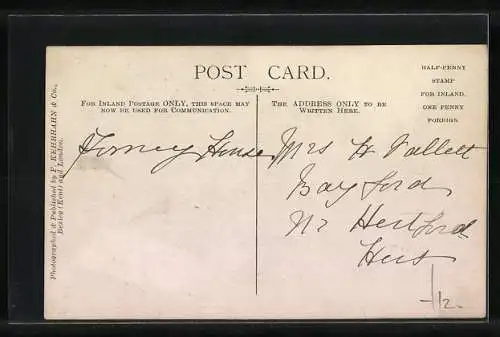 POST CARD.
HALF-PENNY
STAMP
FOR INLAND.
ONE PENNY
FOREIGN.
FOR INLAND POSTAGE ONLY, THIS SPACE MAY
NOW BE USED FOR COMMUNICATION.
THE ADDRESS ONLY TO BE
WRITTEN HERE.
Photographed & Published by F. KEHRHAHN & Co.,
Bexley (Kent) and London.
House
Mrs H Pallett
Bayford
Nr Hertford
Herts